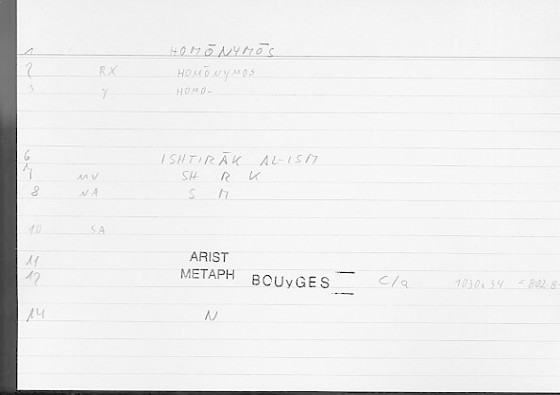 1 HOMŌNYMŌS
2 RX HOMŌNYMOS
3 y HOMO-
6 ISHTIRĀK AL-ISM
7 MV SH R K
8 NA S M
10 SA
11 ARIST
12 METAPH BOUyGES C/a 1030a34 <802.8-
14 N